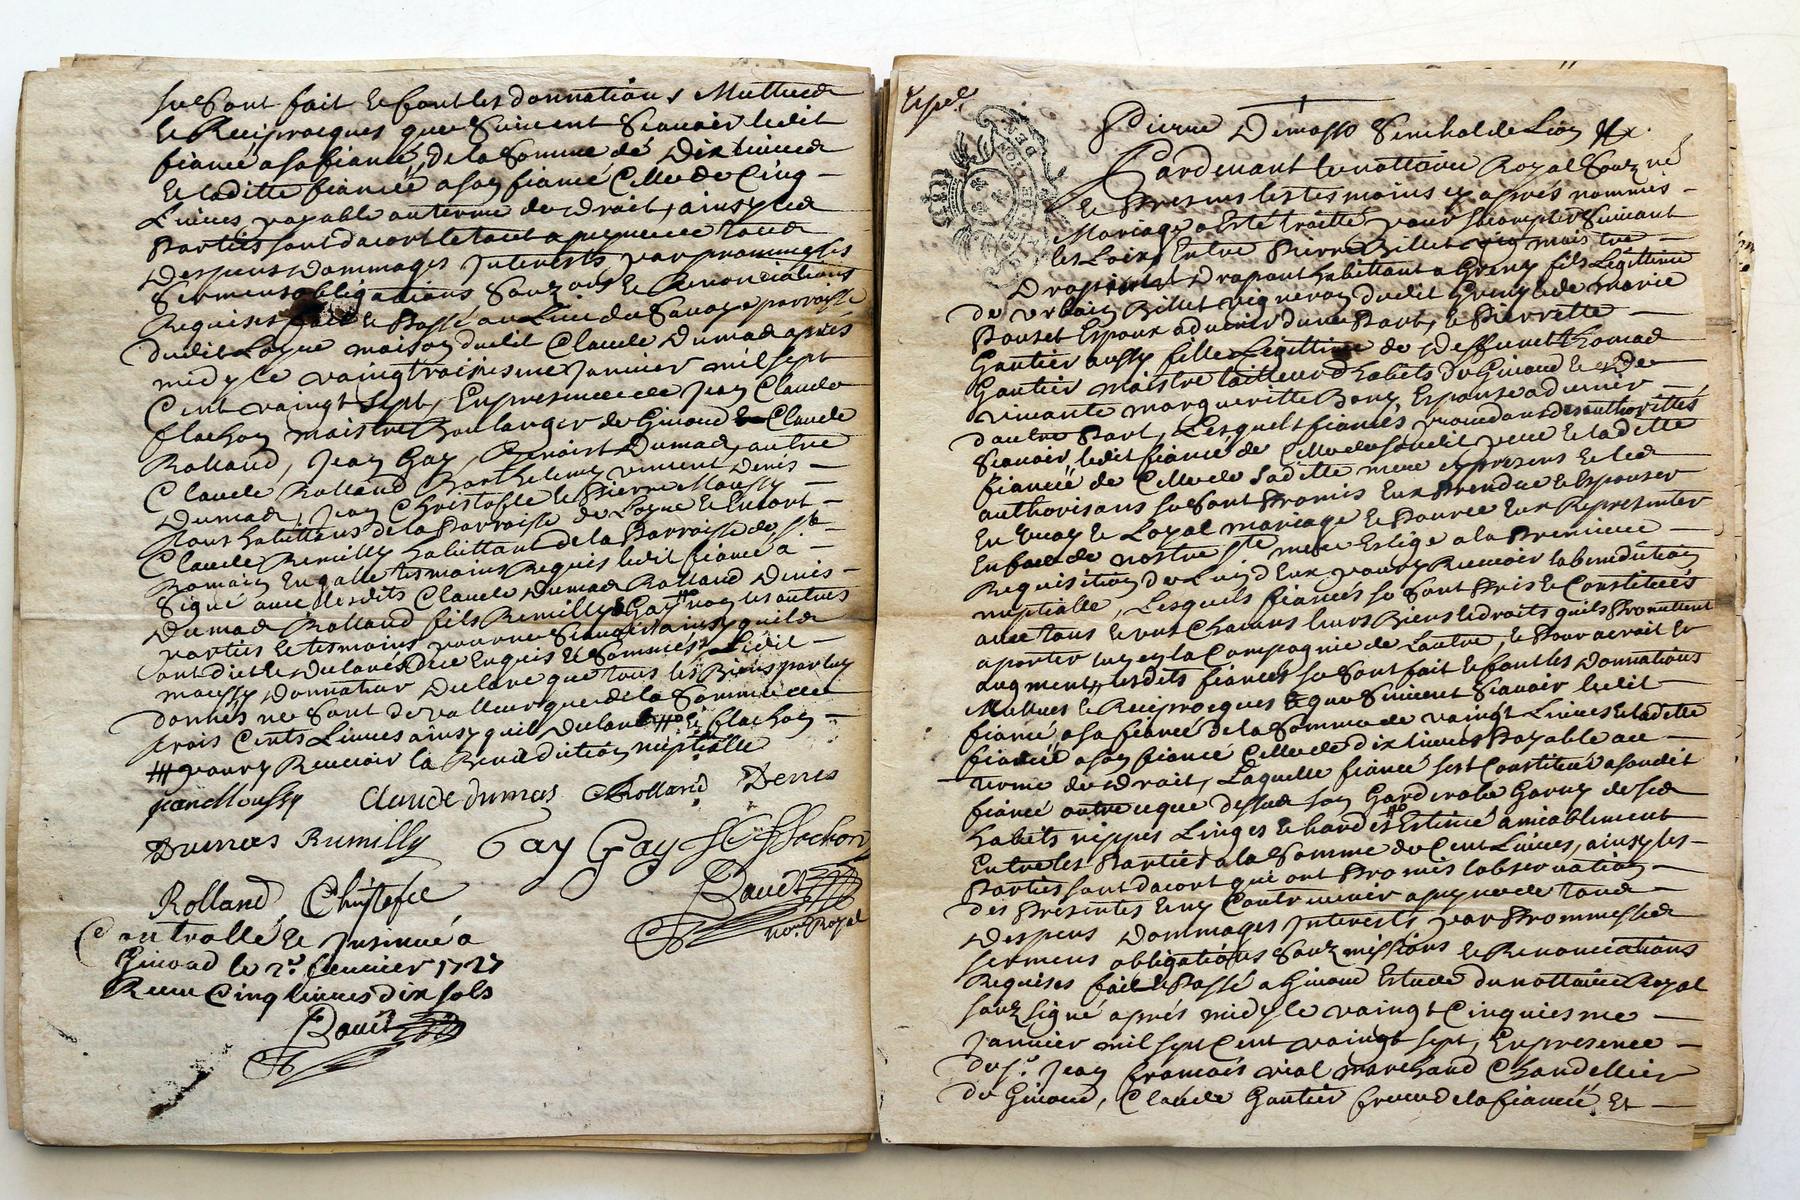 se sont fait et font les donnations Mutuees
et Reciprocques que suivent scavoir ledit
fiancé a sa fiancé, de la somme de Dix livres
Et laditte fianceé a son fiancé Celle de Cinq
Livres payable au terme du droit, ainsy les
Parties sont dacort le tout a peyne de tous
Despens Dommages Interests par promesses
serments obligations Soumi et Renonciations
Requises fait et Passé au Lieu du parroisse
dudit Loyre maison dudit Claude Dumas aprés
midy le vaingtroisiesme Janvier mil sept
Cent vaingt sept, En presence de Jean Claude
flachon maistre Boulanger de Givord Claude
Rolland, Jean Gay, Benoist Dumas, autre
Claude Rolland Barthelemy vincent Denis
Dumas, Jean Christofle et Pierre Moussy
tous habittens de la Parroisse de Loyre et Encort
Claude Remilly habittant de la Parroisse de St
Romain En galle tesmoins Requis ledit fiancé a
Signé avec lesdits Claude Dumas Rolland Denis
Dumas Rolland fils Remilly Gay non les autres
parties et tesmoins pour ne scavoir ainsy quils
ont dit et declaré de ce Enquis et Sommés Ledit
moussy Donnateur Declare que tous les Biens par luy
donnés ne sont de valleur que de la Somme de
trois Cents Livres ainsy quil declare et flachon
pour y Recevoir la Benediction nuptialle
jean Moussy Claude dumas CRolland Denis
Dumas Rumilly Gay Gay JC flachon
Rolland Christofle
Bauet
no.re Royal
Controllé et Insinué a
Givord le 2.d fevrier 1727
Receu Cinq livres dix sols
Bauet
Expe.
Pierre Demasso Senechal de Lion
Pardevant le nottaire Royal Sousné
et Presens les tesmoins cy aprés nommés
Mariage a Eté traitté pour sacomplir Suivant
les Loix Entre Pierre Billet maistre
Drapant habittant a Greny fils Legitime
de Urbain Billet vigneron dudit Greny et de marie
Pouset Espoux advenir dune Part, et Pierrette
Gautier aussy fille Legittime de Deffunct thomas
Gautier maistre tailleur d habits du Givord et de
vivante margueritte Bony Espouse advenir
dautre Part, Lesquels fiancés procedans des authorittés
Scavoir ledit fiancé de Celle de son dit pere et laditte
fianceé de Celle de Saditte mere cy presens et les
authorisans se sont Promis Eux Prendre et Espouser
En vray et Loyal mariage et Pource Eux Representer
En face de nostre ste mere Eslige a la Premiere
Requisition de Lun deux pour y Recevoir la benediction
nuptialle, Lesquels fiancés se sont Pris et Constitués
avec tous et un Chacuns leurs Biens et droits quils Promettent
aporter luy en la Compagnie de Lautre, et Pour acroit et
augment, lesdits fiancés se sont fait et font les Donnations
Mutuees et Reciprocques que Suivent Scavoir ledit
fiancé a sa fianceé de la somme de vaingt Livres et laditte
fianceé a son fiancé Celle de dix livres Payable au
terme du droit, Laquelle fiancé sest Constitué a soudit
fiancé outre ce que dessus son Garderobe Garny de ses
habits nippes Linges et hardes Estimé amiablement
Entre les Parties a la Somme de Cent Livres, ainsy les
Parties sont dacort qui ont Promis lobservation
des Presentes et ny Contrevenir a peyne de tous
Despens Dommages Interests par Prommesses
sermens obligations Soumissions et Renonciations
Requises fait et Passé a Givord Estude du nottaire Royal
souzsigné aprés midy le vaingt Cinquiesme
Janvier mil sept Cent vaingt sept, En presence
de sr. Jean francois vial marchand Chandellier
de Givord, Claude Gautier frere de la fianceé Et